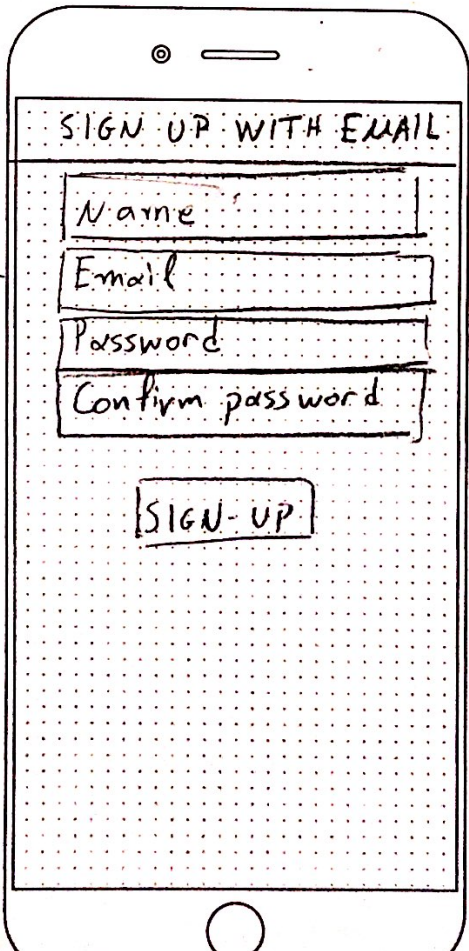 SIGN UP WITH EMAIL
Name
Email
Password
Confirm password
SIGN-UP